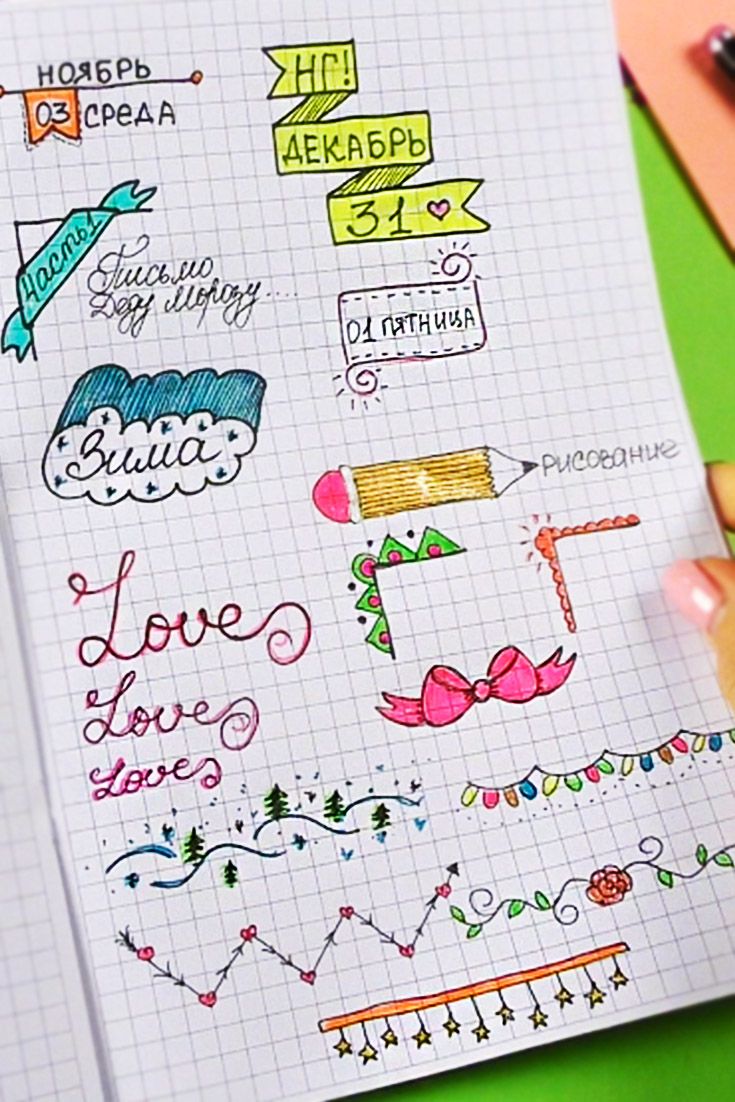 НОЯБРЬ
03 СРЕДА
НГ!
ДЕКАБРЬ
31
Часть 1
Письмо
Деду Морозу....
01 ПЯТНИЦА
Зима
рисование
Love
Love
Love